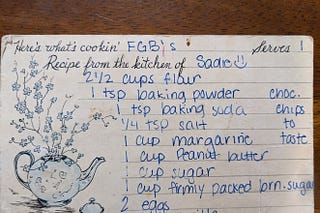 Here's what's cookin' FGB's Serves 1
Recipe from the kitchen of Sadie
2 1/2 cups flour
1 tsp baking powder choc.
1 tsp baking soda chips
1/4 tsp salt to
1 cup margarine taste
1 cup Peanut butter
1 cup sugar
1 cup firmly packed brn. sugar
2 eggs